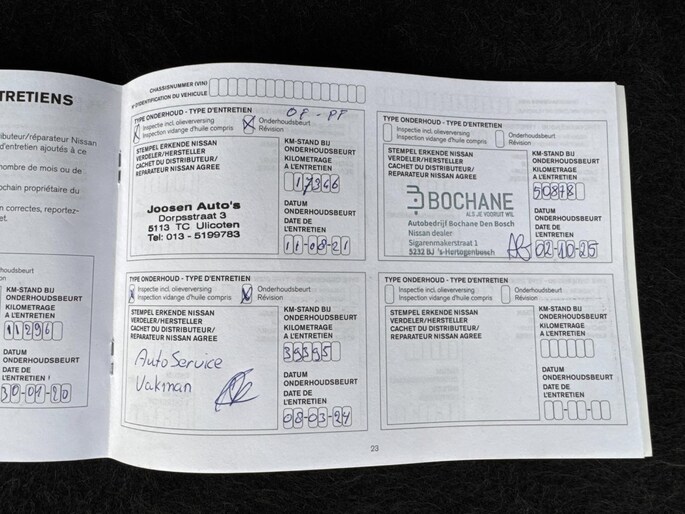 TRETIENS
ibuteur/réparateur Nissan
d'entretien ajoutés à ce
nombre de mois ou de
ochain propriétaire du
n correctes, reportez-
et.
dsbeurt
KM-STAND BIJ
ONDERHOUDSBEURT
KILOMETRAGE
A L'ENTRETIEN
11296
DATUM
ONDERHOUDSBEURT
DATE DE
L'ENTRETIEN
30-01-20
CHASSISNUMMER (VIN)
N° D'IDENTIFICATION DU VEHICULE
TYPE ONDERHOUD - TYPE D'ENTRETIEN
OF - PF
Inspectie incl. olieverversing
Inspection vidange d'huile compris
Onderhoudsbeurt
Révision
STEMPEL ERKENDE NISSAN
VERDELER/HERSTELLER
CACHET DU DISTRIBUTEUR/
REPARATEUR NISSAN AGREE
Joosen Auto's
Dorpsstraat 3
5113 TC Ulicoten
Tel: 013 - 5199783
KM-STAND BIJ
ONDERHOUDSBEURT
KILOMETRAGE
A L'ENTRETIEN
17366
DATUM
ONDERHOUDSBEURT
DATE DE
L'ENTRETIEN
11-08-21
TYPE ONDERHOUD - TYPE D'ENTRETIEN
Inspectie incl. olieverversing
Inspection vidange d'huile compris
Onderhoudsbeurt
Révision
STEMPEL ERKENDE NISSAN
VERDELER/HERSTELLER
CACHET DU DISTRIBUTEUR/
REPARATEUR NISSAN AGREE
BOCHANE
ALS JE VOORUIT WIL
Autobedrijf Bochane Den Bosch
Nissan dealer
Sigarenmakerstraat 1
5232 BJ 's-Hertogenbosch
KM-STAND BIJ
ONDERHOUDSBEURT
KILOMETRAGE
A L'ENTRETIEN
50878
DATUM
ONDERHOUDSBEURT
DATE DE
L'ENTRETIEN
02-10-25
TYPE ONDERHOUD - TYPE D'ENTRETIEN
Inspectie incl. olieverversing
Inspection vidange d'huile compris
Onderhoudsbeurt
Révision
STEMPEL ERKENDE NISSAN
VERDELER/HERSTELLER
CACHET DU DISTRIBUTEUR/
REPARATEUR NISSAN AGREE
AutoService
Vakman
KM-STAND BIJ
ONDERHOUDSBEURT
KILOMETRAGE
A L'ENTRETIEN
35395
DATUM
ONDERHOUDSBEURT
DATE DE
L'ENTRETIEN
08-03-24
TYPE ONDERHOUD - TYPE D'ENTRETIEN
Inspectie incl. olieverversing
Inspection vidange d'huile compris
Onderhoudsbeurt
Révision
STEMPEL ERKENDE NISSAN
VERDELER/HERSTELLER
CACHET DU DISTRIBUTEUR/
REPARATEUR NISSAN AGREE
KM-STAND BIJ
ONDERHOUDSBEURT
KILOMETRAGE
A L'ENTRETIEN
DATUM
ONDERHOUDSBEURT
DATE DE
L'ENTRETIEN
23